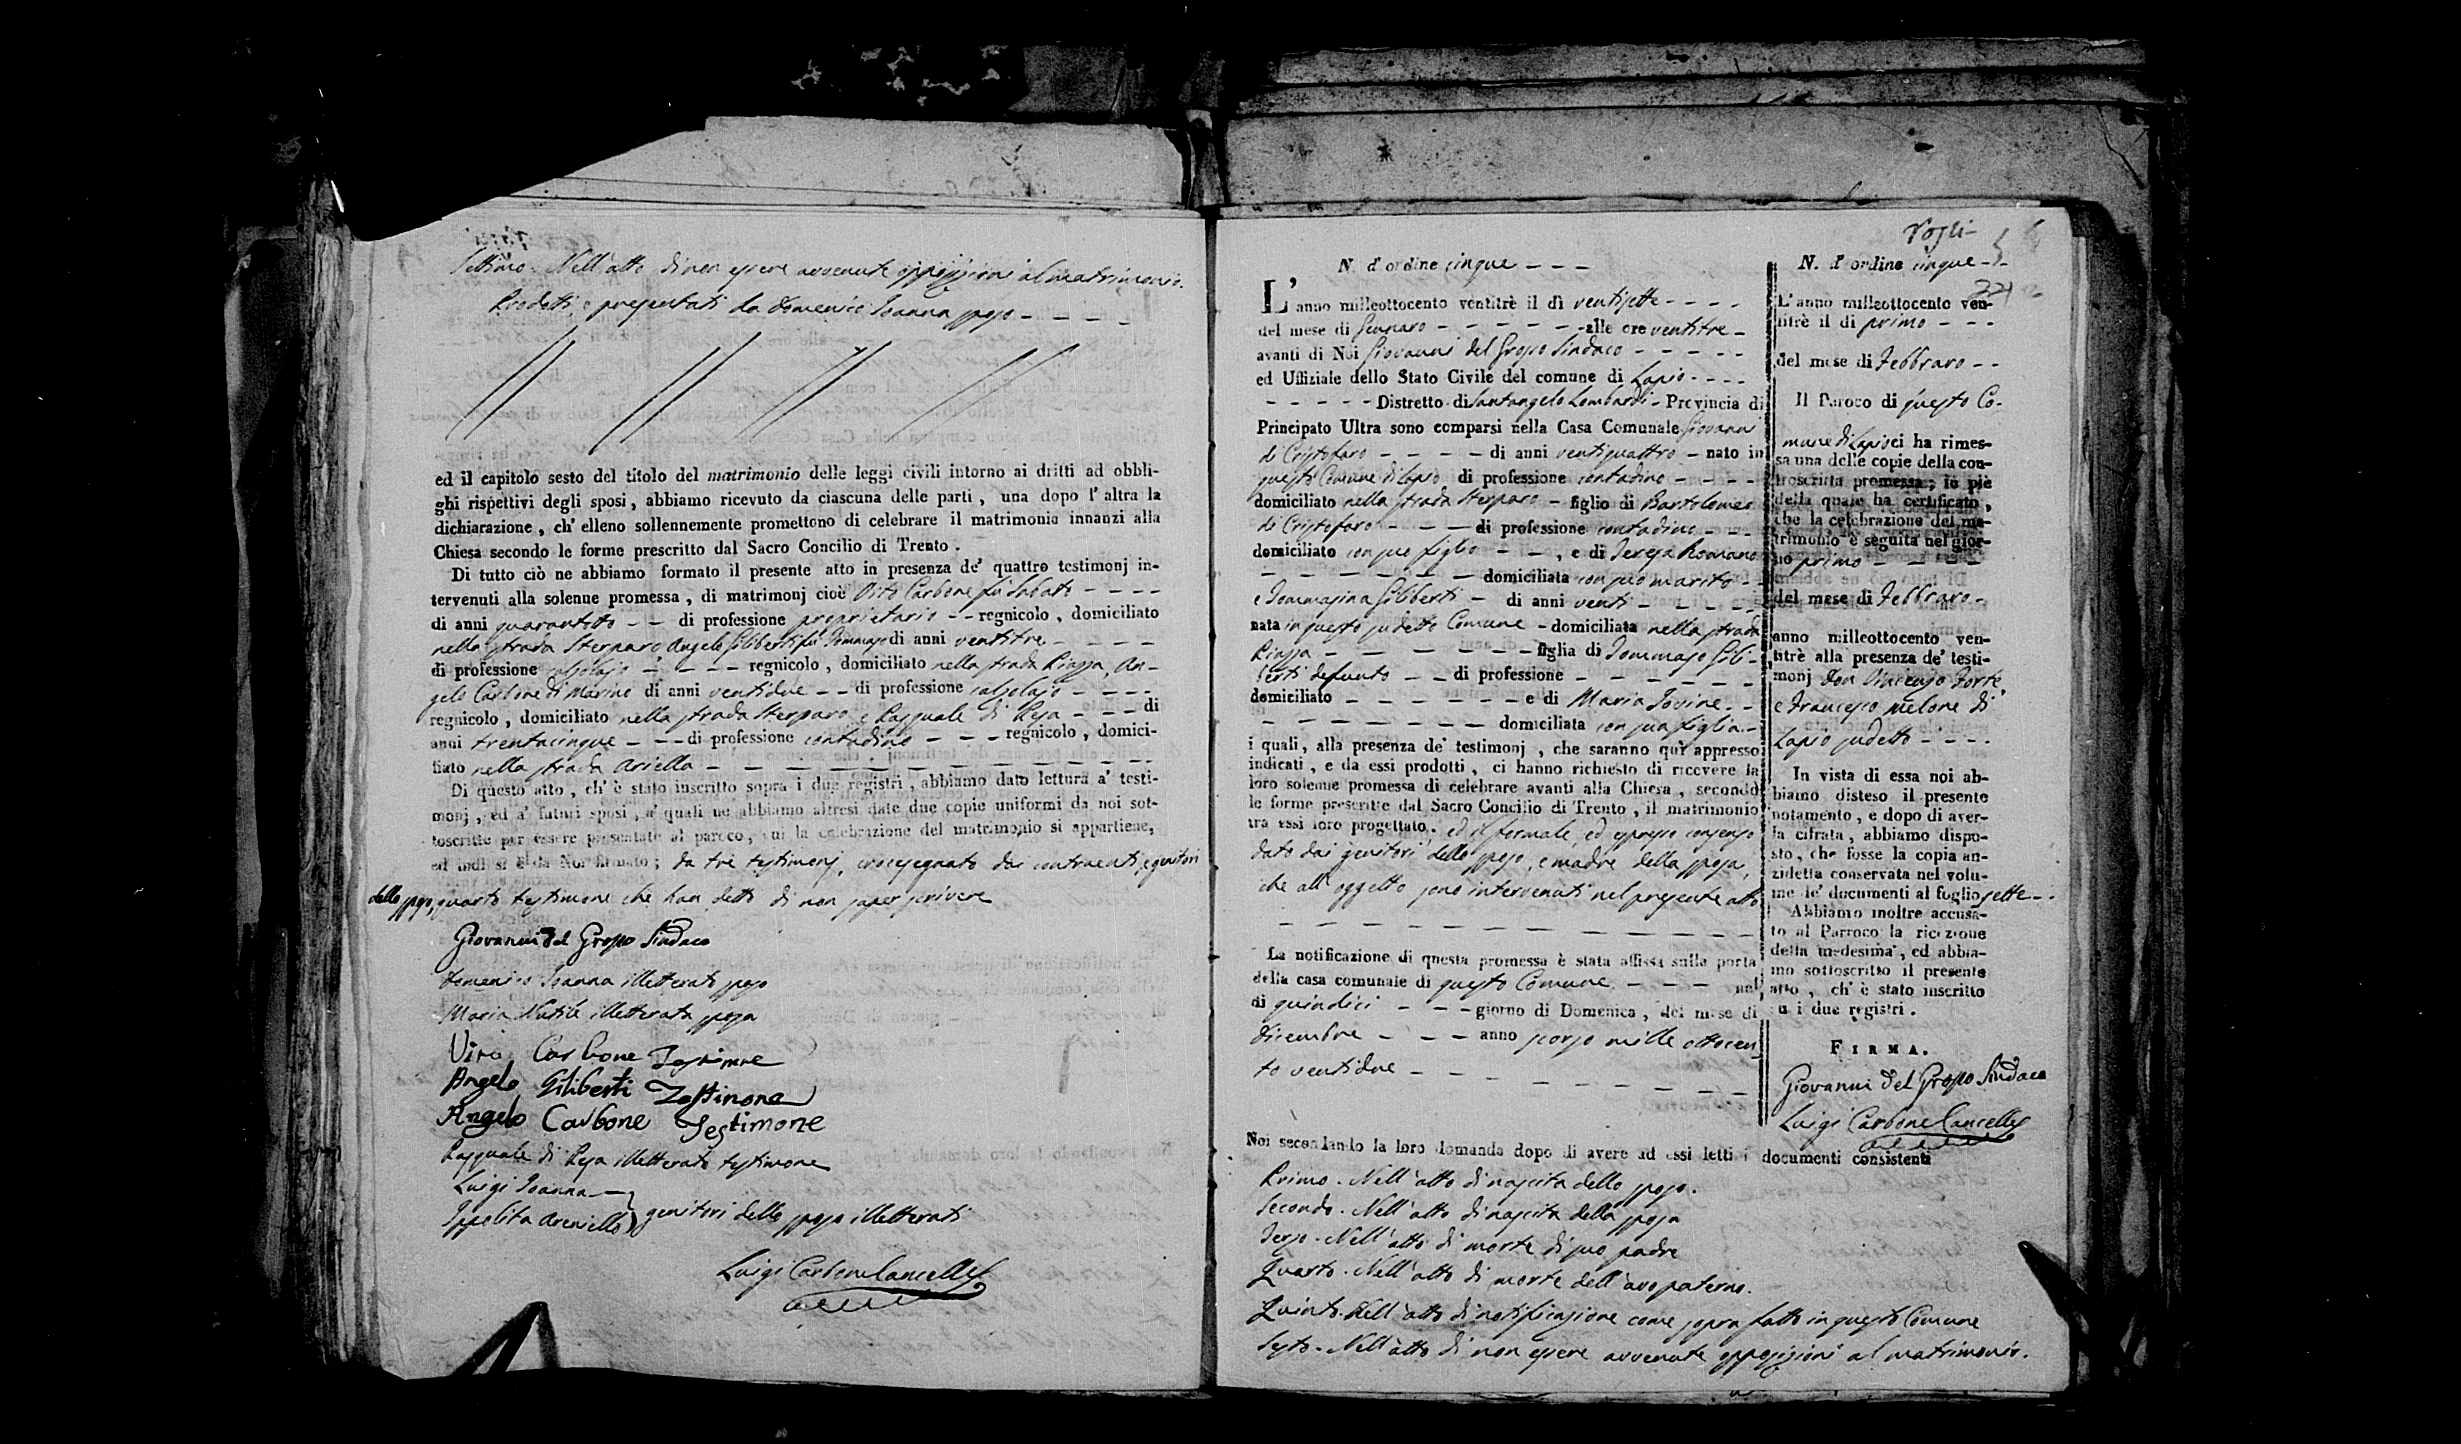 Settimo. Nell'atto di non essere avvenute opposizioni al matrimonio.
Prodotti, e presentati da Domenico Joanna sposo - - - -
ed il capitolo sesto del titolo del matrimonio delle leggi civili intorno ai dritti ad obbli-
ghi rispettivi degli sposi, abbiamo ricevuto da ciascuna delle parti, una dopo l'altra la
dichiarazione, ch'elleno sollennemente promettono di celebrare il matrimonio innanzi alla
Chiesa secondo le forme prescritto dal Sacro Concilio di Trento.
Di tutto ciò ne abbiamo formato il presente atto in presenza de' quattro testimonj in-
tervenuti alla solenne promessa, di matrimonj cioè Vito Carbone fu Sabato - - - -
di anni quarantotto - - di professione proprietario - - regnicolo, domiciliato
nella strada Sterparo Angelo Giliberti fu Tommaso di anni ventitre - - - -
di professione calzolajo - - - - regnicolo, domiciliato nella strada Piazza, An-
gelo Carbone di Marino di anni ventidue - - di professione calzolajo - - - -
regnicolo, domiciliato nella strada Sterparo e Pasquale di Resa - - - di
anni trentacinque - - - di professione contadino - - - regnicolo, domici-
liato nella strada Ariella - - - - - - - - - - - - - - -
Di questo atto, ch'è stato inscritto sopra i due registri, abbiamo dato lettura a' testi-
monj, ed a' futuri sposi, a' quali ne abbiamo altresì date due copie uniformi da noi sot-
toscritte per essere presentate al parroco, cui la celebrazione del matrimonio si appartiene,
ed indi si è da Noi firmato; da tre testimonj, crocesegnato da contraenti, e genitori
dello sposo, quarto testimone che han detto di non saper scrivere
Giovanni del Grosso Sindaco
Domenico Joanna illetterato sposo
Maria Nutile illetterata sposa
Vito Carbone Testimone
Angelo Giliberti Testimone
Angelo Carbone Testimone
Pasquale di Resa illetterato testimone
Luigi Joanna
Ippolita Areniello genitori dello sposo illetterati
Luigi Carbone Cancelle
N. d'ordine cinque - - -
L'anno milleottocento ventitrè il dì ventisette - - - -
del mese di Gennaro - - - - - - alle ore ventitre -
avanti di Noi Giovanni del Grosso Sindaco - - - - -
ed Uffiziale dello Stato Civile del comune di Lapio - - - -
- - - - - Distretto di Santangelo Lombardi - Provincia di
Principato Ultra sono comparsi nella Casa Comunale Giovanni
di Cristofaro - - - - di anni ventiquattro - nato in
questo Comune di Lapio di professione contadino - - - -
domiciliato nella strada Sterparo - figlio di Bartolomeo
di Cristofaro - - - - di professione contadino - - -
domiciliato con suo figlio - - , e di Teresa Romano
- - - - - - - domiciliata con suo marito - -
e Tommasina Giliberti - di anni venti - - - - -
nata in questo sudetto Comune - domiciliata nella strada
Piazza - - - - - - - figlia di Tommaso Gili-
berti defunto - - di professione - - - - - -
domiciliato - - - - - - e di Maria Jovine - -
- - - - - - - domiciliata con sua figlia -
i quali, alla presenza de' testimonj, che saranno quì appresso
indicati, e da essi prodotti, ci hanno richiesto di ricevere la
loro solenne promessa di celebrare avanti alla Chiesa, secondo
le forme prescritte dal Sacro Concilio di Trento, il matrimonio
tra essi loro progettato. ed il formale, ed espresso consenso
dato dai genitori dello sposo, e madre della sposa,
che all'oggetto sono intervenuti nel presente atto
- - - - - - - - - - - - - - -
La notificazione di questa promessa è stata affissa sulla porta
della casa comunale di questo Comune - - - nel
dì quindici - - - giorno di Domenica, del mese di
Dicembre - - - anno scorso mille ottocen
to ventidue - - - - - - - - - -
Noi secondando la loro domanda dopo di avere ad essi letti i documenti consistenti
Primo. Nell'atto di nascita dello sposo.
Secondo. Nell'atto di nascita della sposa
Terzo. Nell'atto di morte di suo padre
Quarto. Nell'atto di morte dell'avo paterno.
Quinto. Nell'atto di notificazione come sopra fatto in questo Comune
Sesto. Nell'atto di non essere avvenute opposizioni al matrimonio.
N. d'ordine cinque - -
L'anno milleottocento ven-
titrè il di primo - - -
del mese di Febbraro - -
Il Paroco di questo Co-
mune di Lapio ci ha rimes-
sa una delle copie della con-
troscritta promessa; in piè
della quale ha certificato,
che la celebrazione del ma-
trimonio è seguita nel gior-
no primo - - - - -
del mese di Febbraro -
anno milleottocento ven-
titrè alla presenza de' testi-
monj Don Vincenzo Forte
e Francesco Melone di
Lapio sudetto - - - -
In vista di essa noi ab-
biamo disteso il presente
notamento, e dopo di aver-
la cifrata, abbiamo dispo-
sto, che fosse la copia an-
zidetta conservata nel volu-
me de' documenti al foglio sette - -
Abbiamo inoltre accusa-
to al Parroco la ricezione
della medesima, ed abbia-
mo sottoscritto il presente
atto, ch'è stato inscritto
su i due registri.
FIRMA.
Giovanni del Grosso Sindaco
Luigi Carbone Cancelle